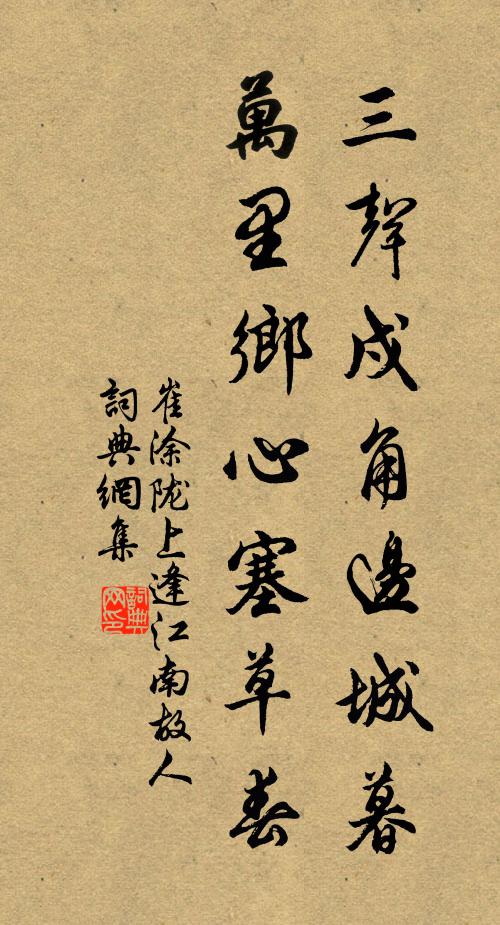 三聲戍角邊城暮
萬里鄉心塞草春
崔涂陇上逢江南故人
詞典網集
詞典网印